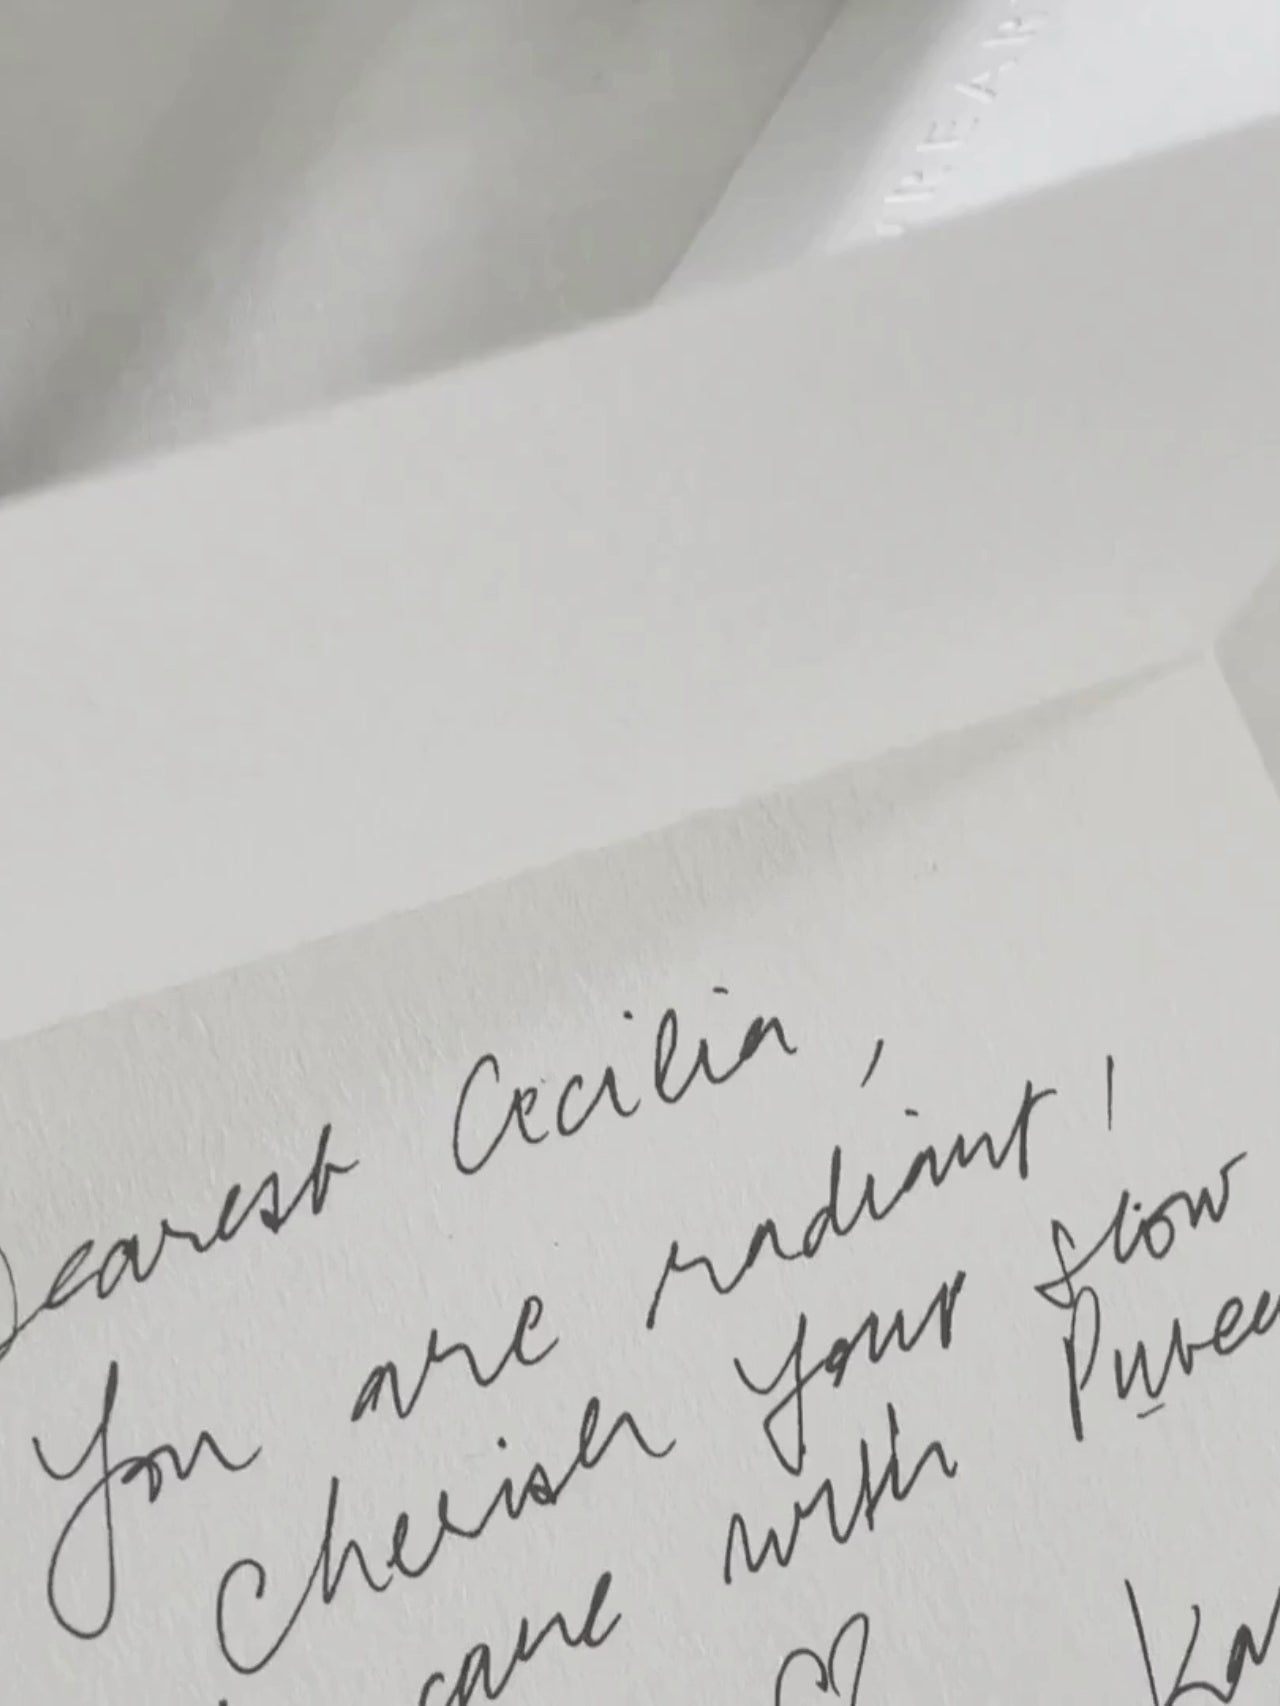 Dearest Cecilia,
You are radiant!
Cherish your slow
care with